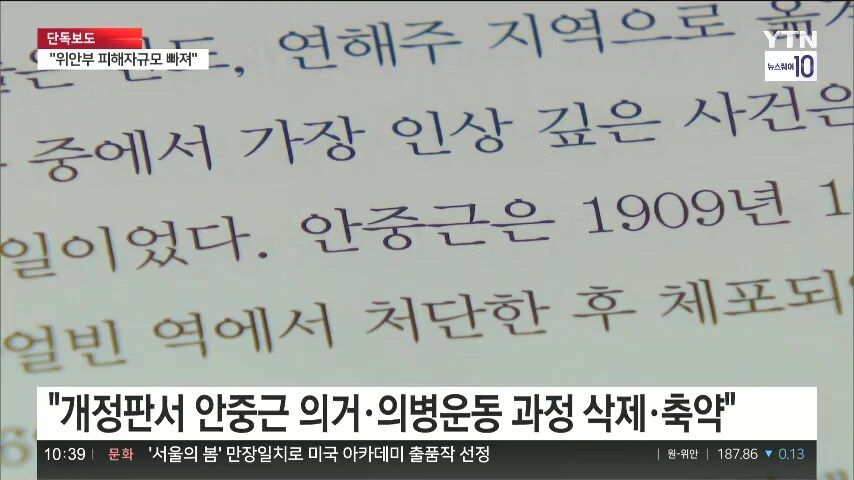 단독보도
"위안부 피해자규모 빠져"
YTN
뉴스퀘어 10
연해주 지역으로
중에서 가장 인상 깊은 사건은
일이었다. 안중근은 1909년
얼빈 역에서 처단한 후 체포되
"개정판서 안중근 의거·의병운동 과정 삭제·축약"
10:39 문화 '서울의 봄' 만장일치로 미국 아카데미 출품작 선정 원-위안 187.86 ▼ 0.13